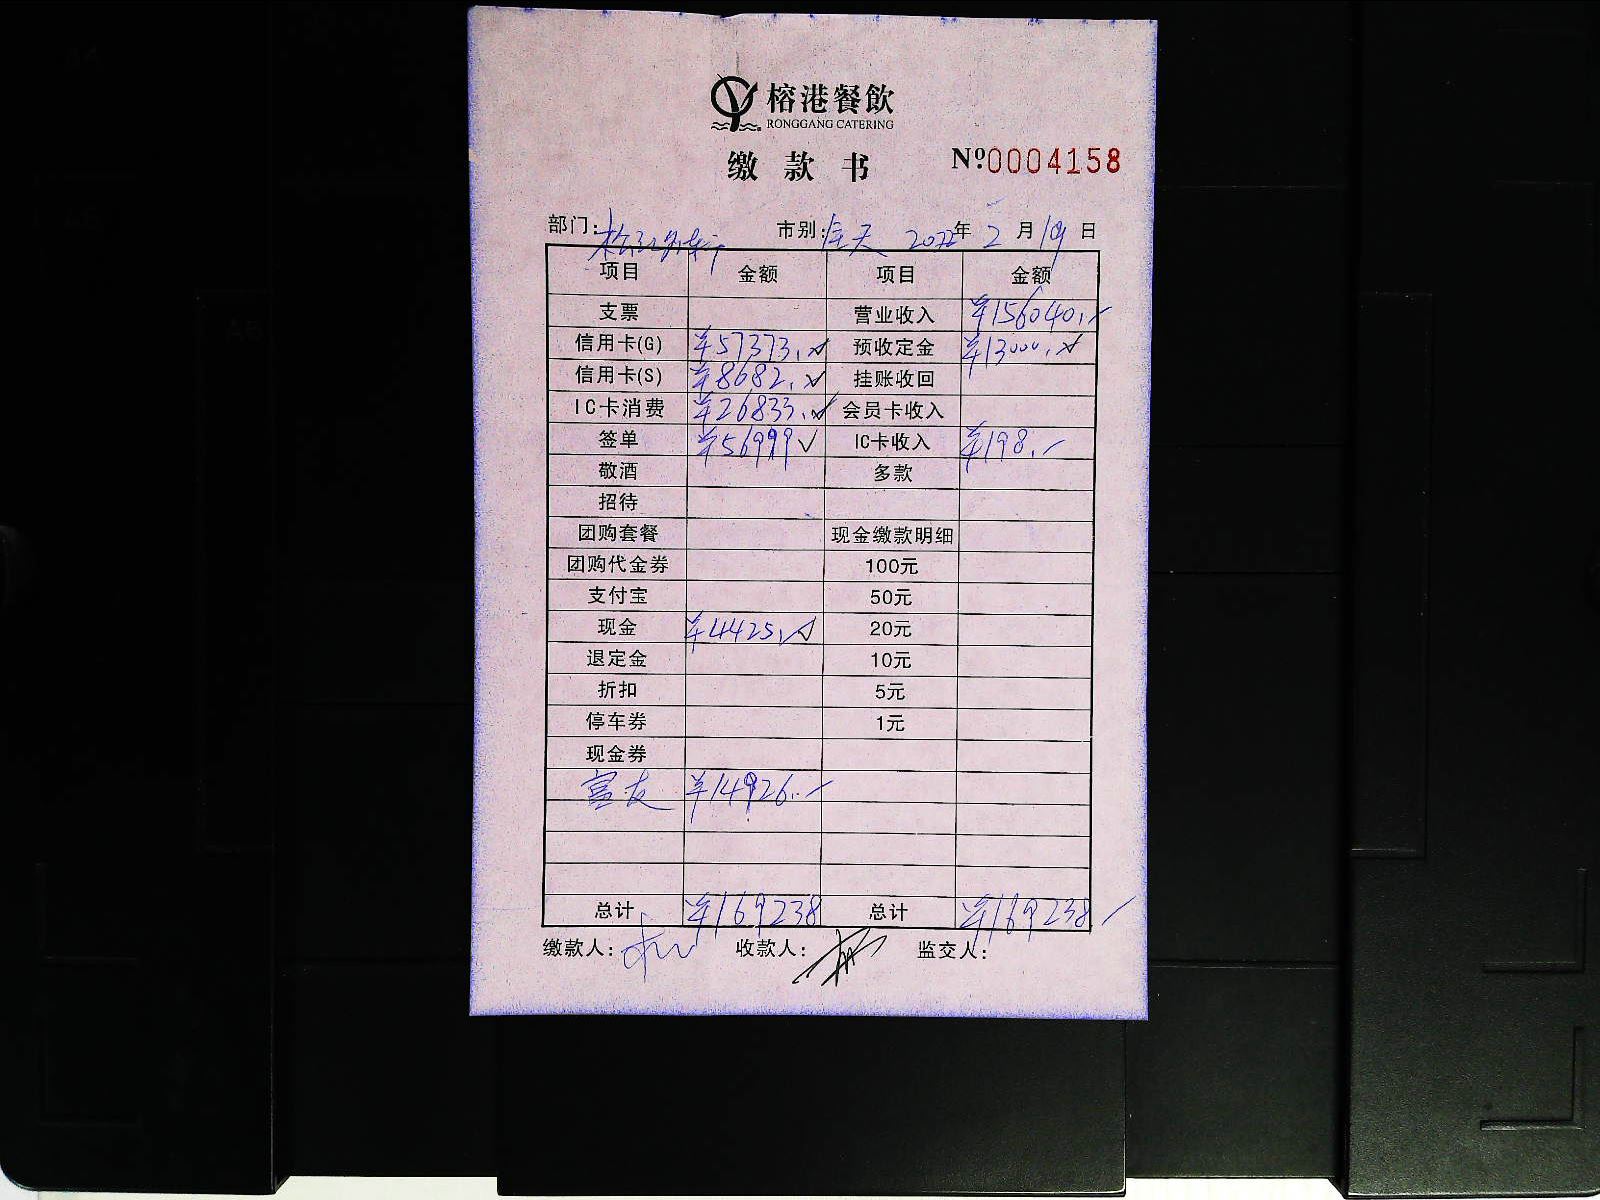 榕港餐飲
RONGGANG CATERING
缴款书 Nº0004158
部门: 市别:全天 2022年2月19日
项目 金额 项目 金额
支票 营业收入 ¥156040.-
信用卡(G) ¥57373.- 预收定金 ¥13000.-
信用卡(S) ¥8682.- 挂账收回
IC卡消费 ¥26833.- 会员卡收入
签单 ¥56999 IC卡收入 ¥198.-
敬酒 多款
招待
团购套餐 现金缴款明细
团购代金券 100元
支付宝 50元
现金 ¥4425.- 20元
退定金 10元
折扣 5元
停车券 1元
现金券
富友 ¥14926.-
总计 ¥169238 总计 ¥169238-
缴款人: 收款人: 监交人: